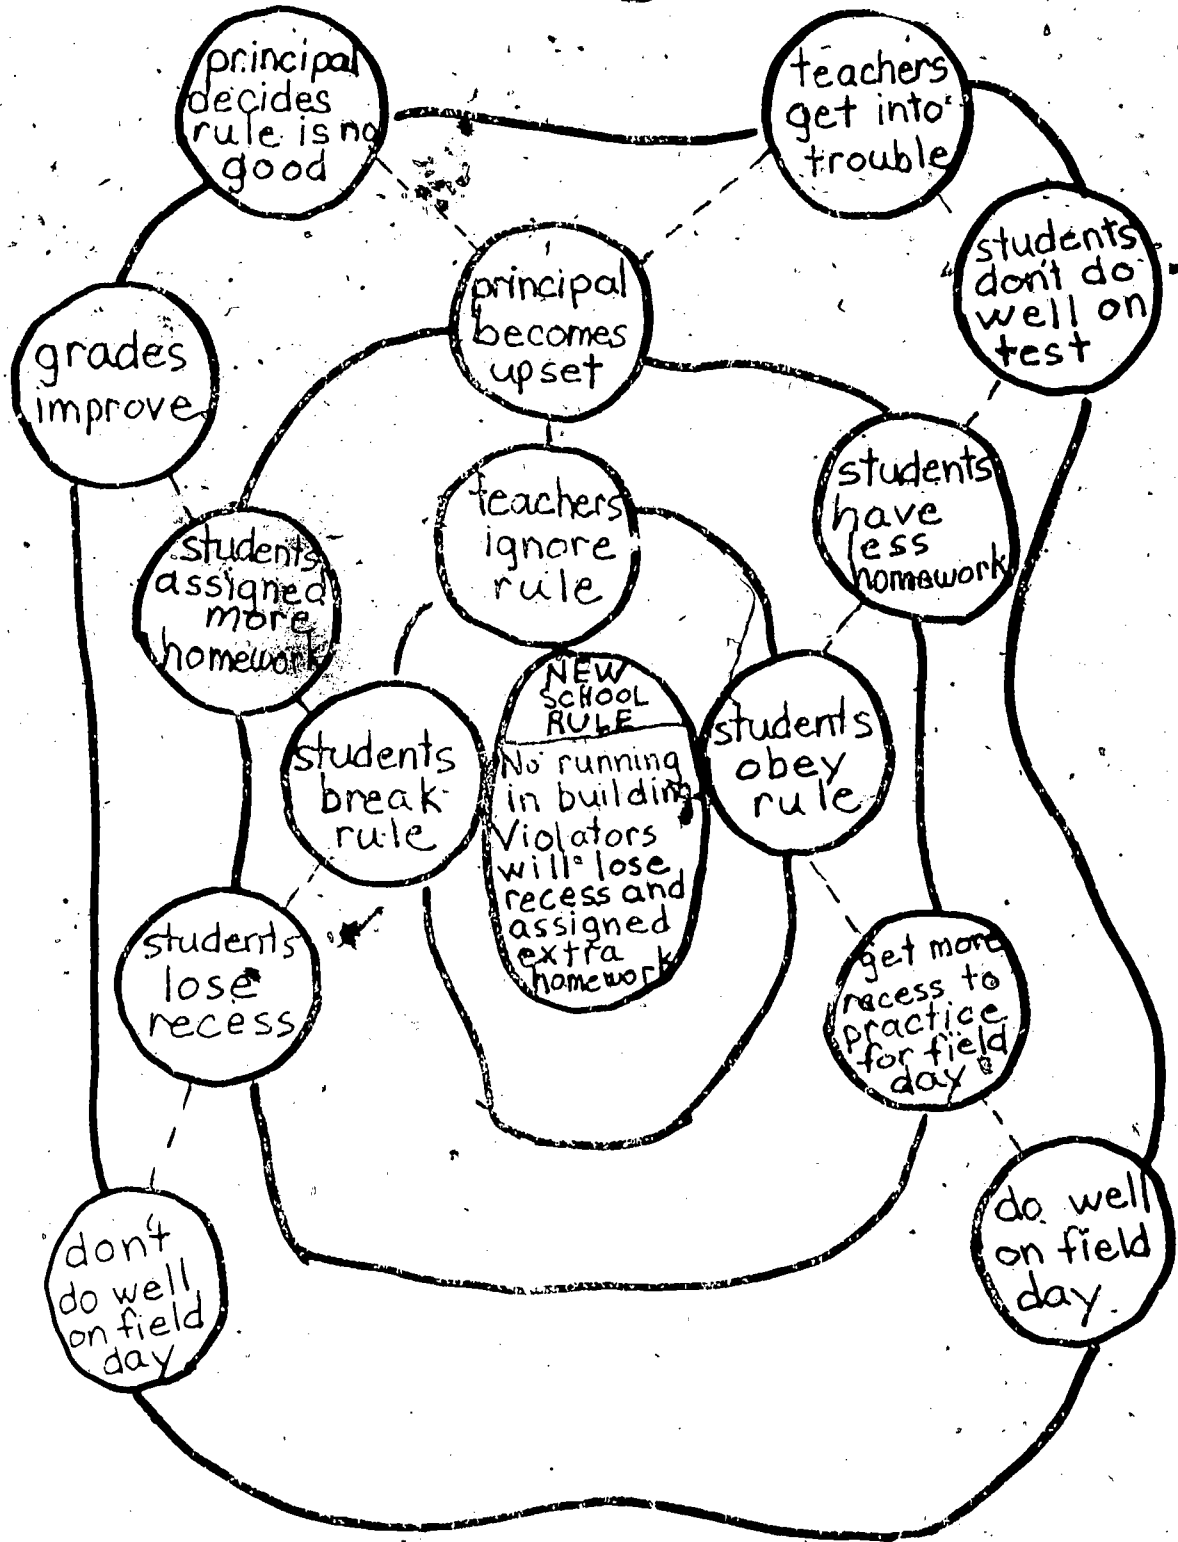 principal
decides
rule is no
good
teachers
get into
trouble
students
don't do
well on
test
principal
becomes
upset
grades
improve
teachers
ignore
rule
students
have
less
homework
students
assigned
more
homework
NEW
SCHOOL
RULE
No running
in building
Violators
will lose
recess and
assigned
extra
homework
students
break
rule
students
obey
rule
students
lose
recess
get more
recess to
practice
for field
day
don't
do well
on field
day
do well
on field
day